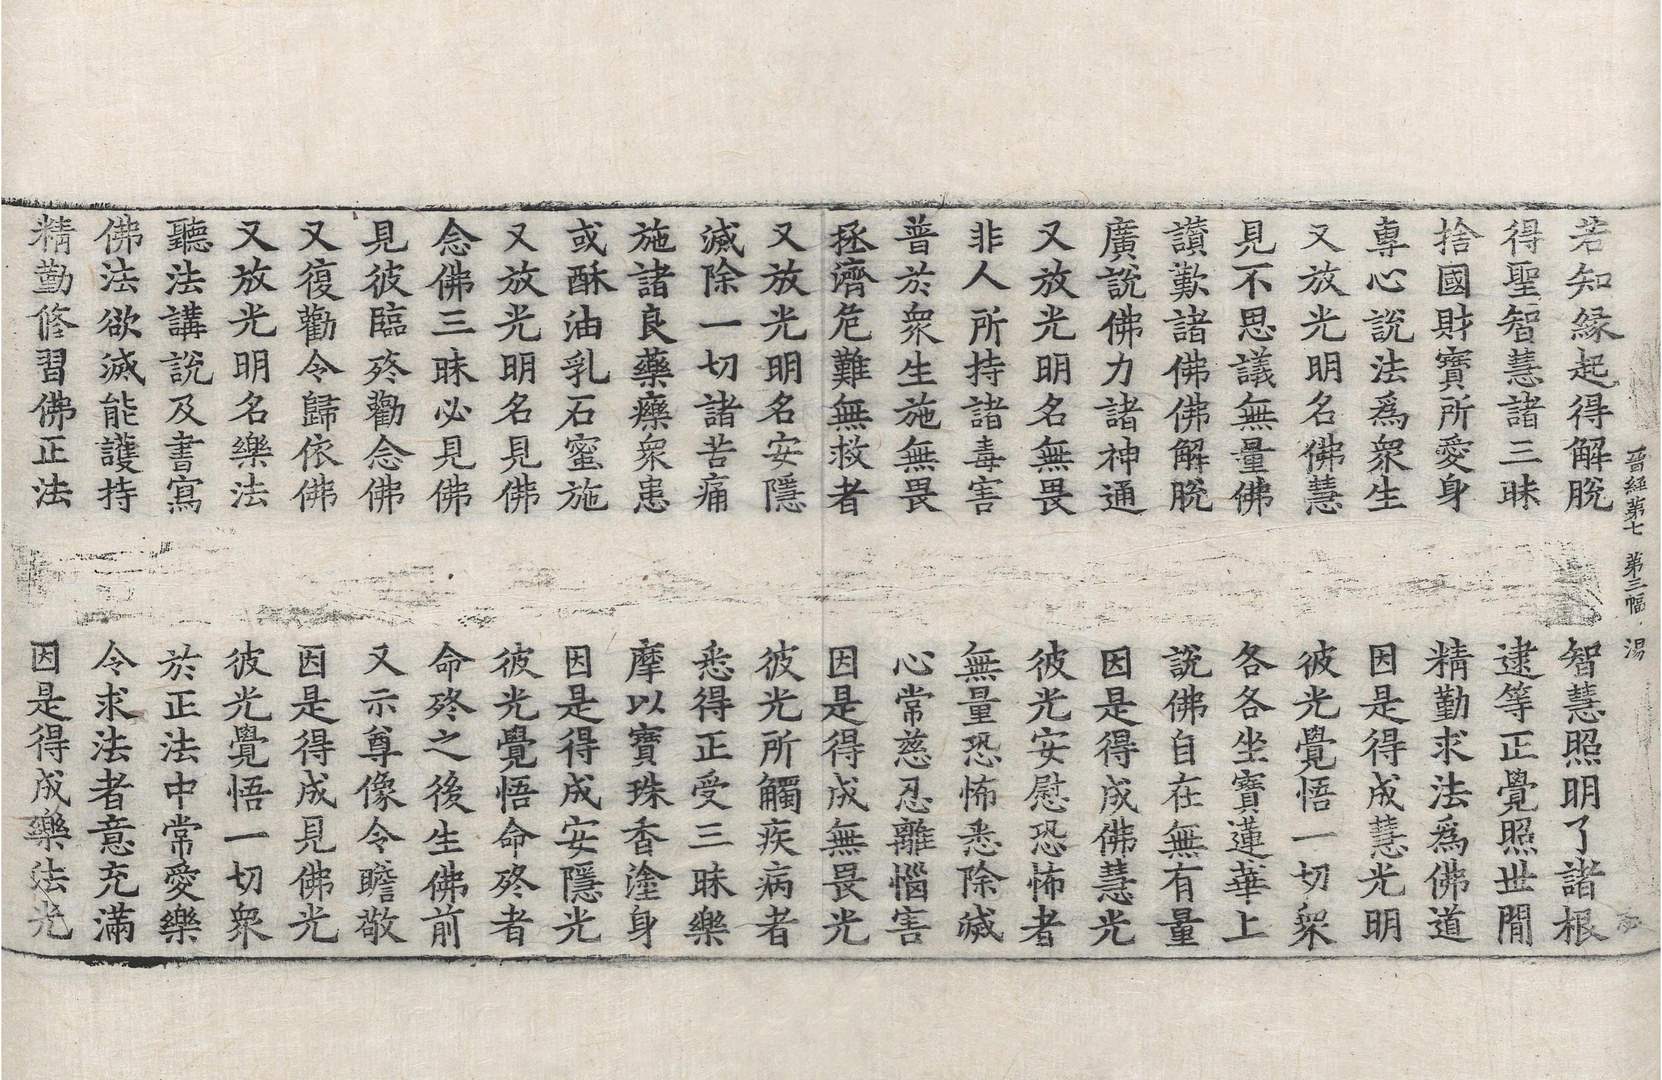 晉經第七 第三幅 湯
若知緣起得解脫 智慧照明了諸根
得聖智慧諸三昧 逮等正覺照世間
捨國財寶所愛身 精勤求法爲佛道
專心說法爲眾生 因是得成慧光明
又放光明名佛慧 彼光覺悟一切眾
見不思議無量佛 各各坐寶蓮華上
讃歎諸佛佛解脫 說佛自在無有量
廣說佛力諸神通 因是得成佛慧光
又放光明名無畏 彼光安慰恐怖者
非人所持諸毒害 無量恐怖悉除滅
普於眾生施無畏 心常慈忍離惱害
拯濟危難無救者 因是得成無畏光
又放光明名安隱 彼光所觸疾病者
滅除一切諸苦痛 悉得正受三昧樂
施諸良藥療眾患 摩以寶珠香塗身
或酥油乳石蜜施 因是得成安隱光
又放光明名見佛 彼光覺悟命終者
念佛三昧必見佛 命終之後生佛前
見彼臨終勸念佛 又示尊像令瞻敬
又復勸令歸依佛 因是得成見佛光
又放光明名樂法 彼光覺悟一切眾
聽法講說及書寫 於正法中常愛樂
佛法欲滅能護持 令求法者意充滿
精勤修習佛正法 因是得成樂法光